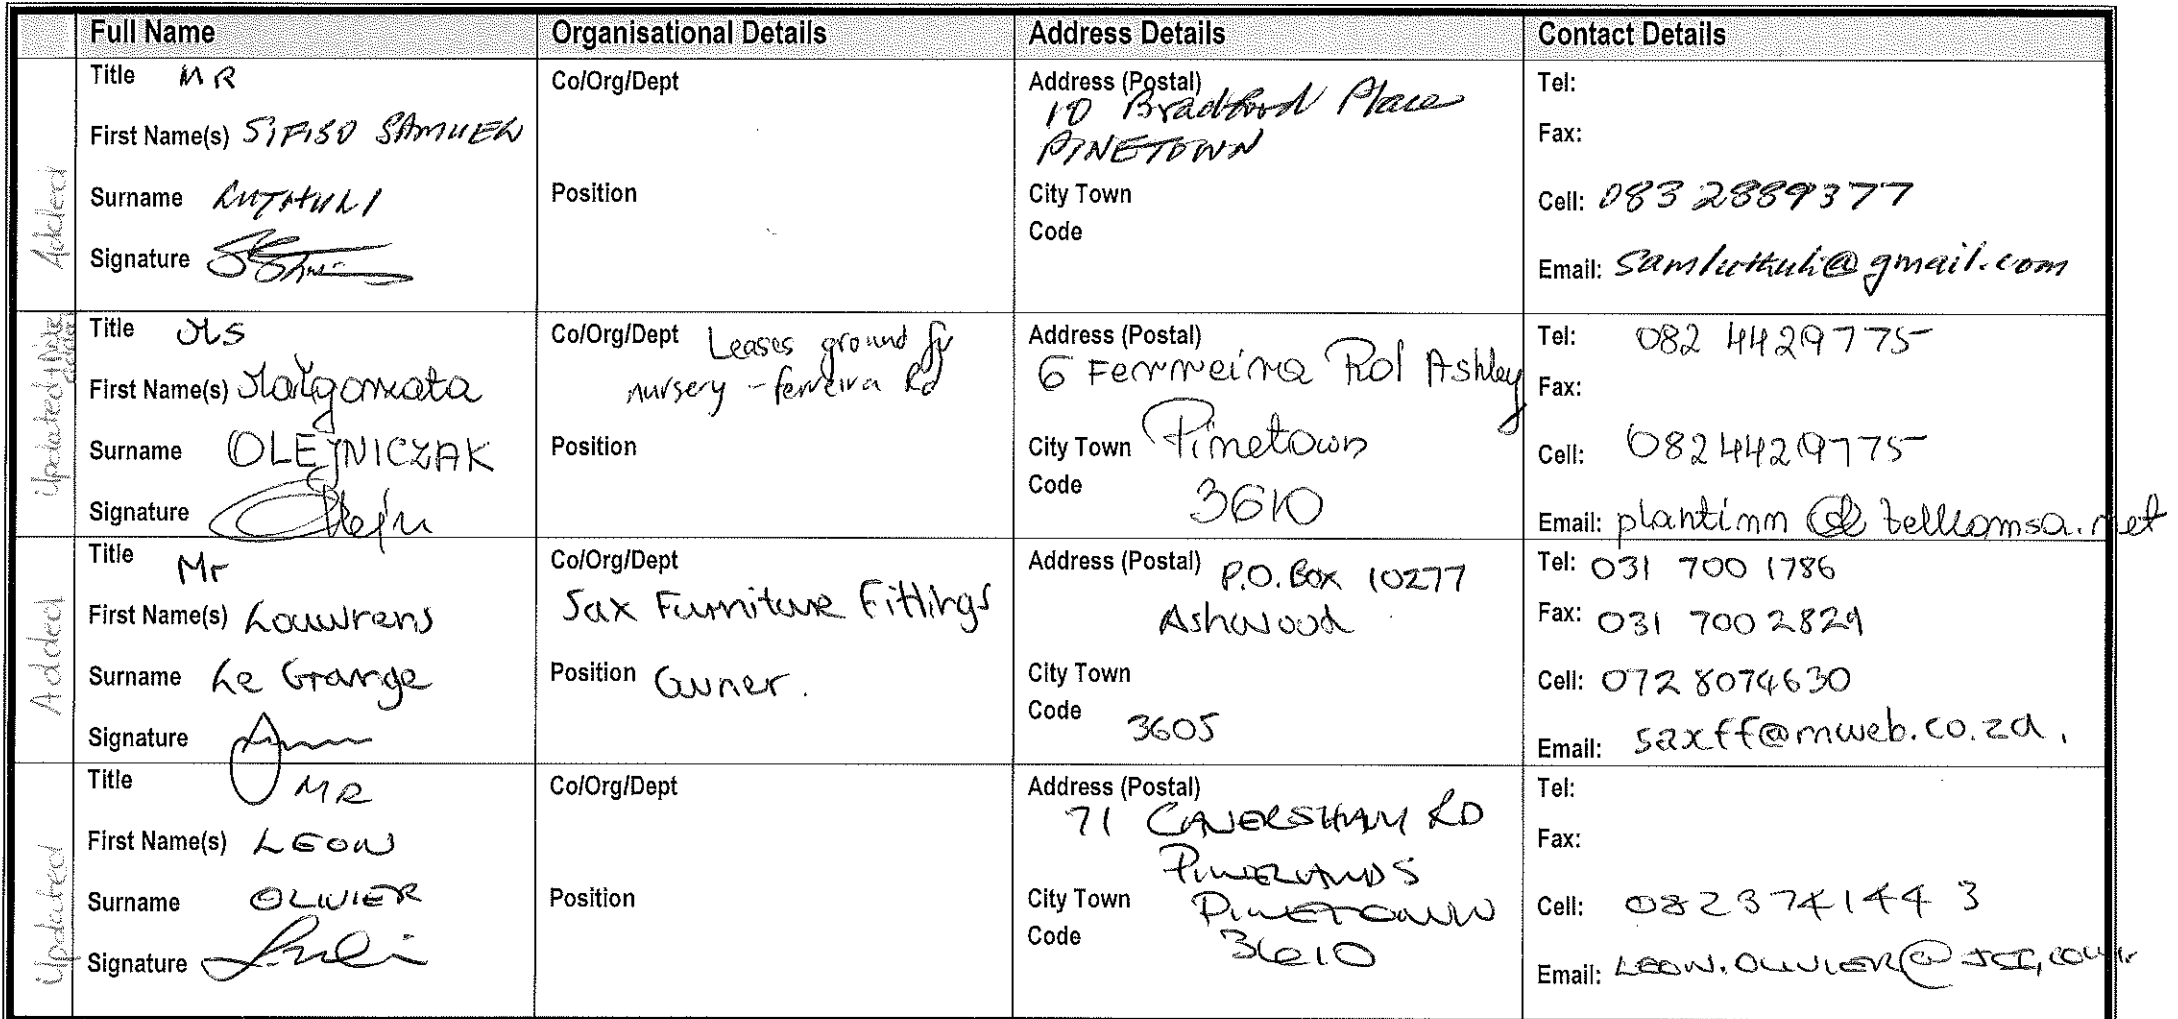 Full Name Organisational Details Address Details Contact Details
Added
Title MR
First Name(s) SIFISO SAMUEL
Surname LUTHULI
Signature
Co/Org/Dept
Position
Address (Postal) 10 Bradford Place
PINETOWN
City Town
Code
Tel:
Fax:
Cell: 083 2889377
Email: samluthuli@gmail.com
Updated
Title Ms
First Name(s) Małgorzata
Surname OLEJNICZAK
Signature
Co/Org/Dept Leases ground for
nursery - ferreira Rd
Position
Address (Postal)
6 Ferrreira Rd Ashley
City Town Pinetown
Code 3610
Tel: 082 4429775
Fax:
Cell: 0824429775
Email: plantinn@telkomsa.net
Added
Title Mr
First Name(s) Louwrens
Surname Le Grange
Signature
Co/Org/Dept
Sax Furniture Fittings
Position Owner.
Address (Postal) P.O. Box 10277
Ashwood
City Town
Code 3605
Tel: 031 700 1786
Fax: 031 700 2829
Cell: 072 8074630
Email: saxff@mweb.co.za.
Updated
Title MR
First Name(s) LEON
Surname OLIVIER
Signature
Co/Org/Dept
Position
Address (Postal)
71 CAVERSHAM RD
PINELANDS
City Town PINETOWN
Code 3610
Tel:
Fax:
Cell: 0823741443
Email: